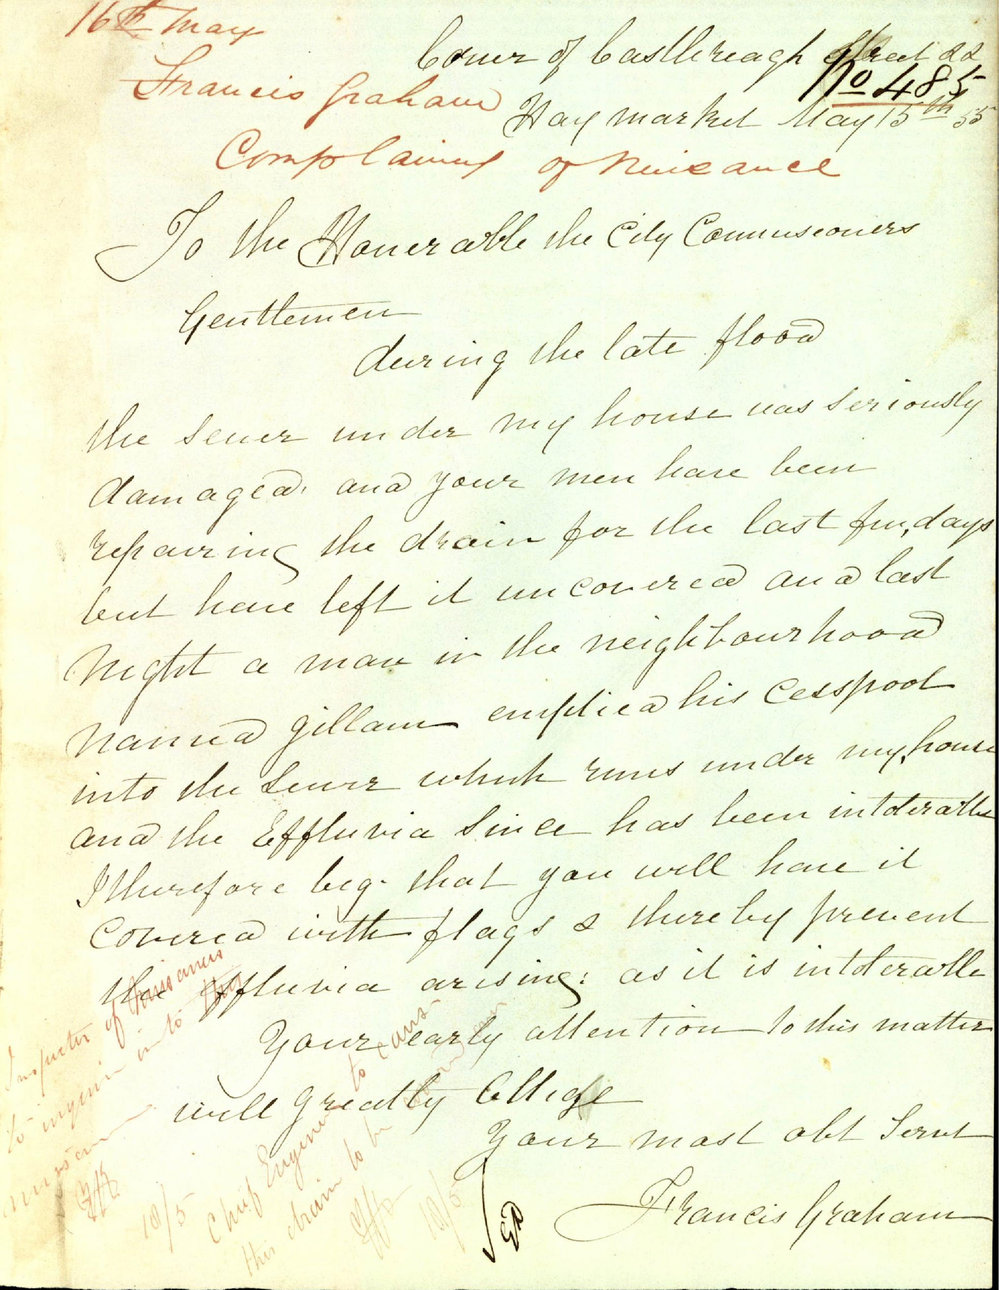 16th May
Francis Graham
Complaining of Nuisance
Corner of Castlereagh Street &
No 485
Hay market May 15th 55
To the Honerable the City Commissioners
Gentlemen
during the late flood
the sewer under my house was seriously
damaged. and your men have been
repairing the drain for the last few days
but have left it uncovered and last
night a man in the neighbourhood
named Gillam emptied his Cesspool
into the sewer which runs under my house
and the Effluvia since has been intolerable
I therefore beg. that you will have it
Covered with flags & thereby prevent
the effluvia arising: as it is intolerable
Your early attention to this matter
will greatly oblige
Your most obt Servt
Francis Graham
Inspector of Nuisances
to inquire into this
nuisance
18/5
Chief Engineer to cause
this drain to be
18/5